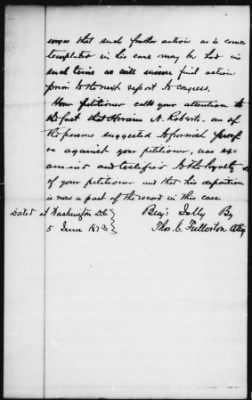 that such further action as is contemplated
in his case may be had in
such time as will secure final action
prior to the next report to Congress.
Your petitioner calls your attention to
the fact that A. Roberts. one of
the persons suggested to furnish proof
as against your petitioner, was
and testified to the loyalty
of your petitioner and that his deposition
is now a part of the record in this case.
Dated at Washington D.C. } Benj. Jolly By
5 June 1873 } Thos. C. Fullerton Atty